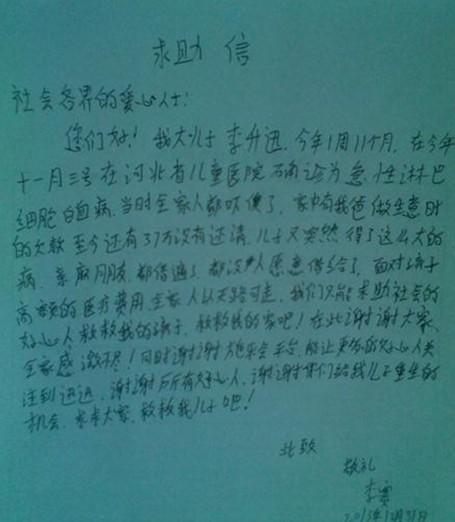 求助信
社会各界的爱心人士:
您们好!我大儿子李升迅,今年1周11个月,在今年
十一月三号在河北省儿童医院确诊为急性淋巴
细胞白血病,当时全家人都吓傻了,家中有我爸做生意时
的欠款至今还有3万没有还清,儿子又突然得了这么大的
病,亲戚朋友都借遍了,都没人愿意借给了,面对孩子
高额的医疗费用,全家人以无路可走,我们只能求助社会的
好心人救救我的孩子,救救我的家吧!在此谢谢大家,
全家感激不尽!同时谢谢 平台,能让更多的好心人关
注到迅迅,谢谢所有好心人,谢谢你们给我儿子重生的
机会,求求大家,救救我儿子吧!
此致
敬礼
李
2013年12月31日